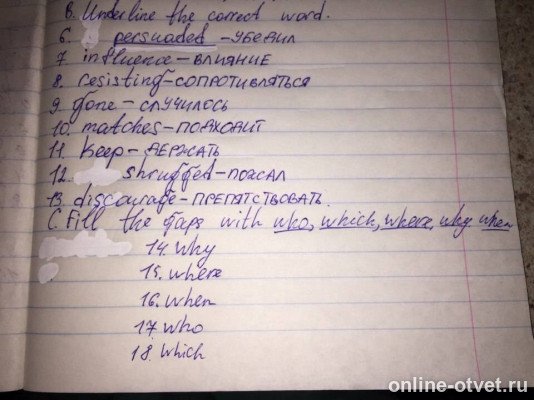 B. Underline the correct word.
6. persuaded - УБЕДИЛ
7 influence - ВЛИЯНИЕ
8. resisting - СОПРОТИВЛЯТЬСЯ
9 gone - СЛУЧИЛОСЬ
10. matches - ПОДХОДИТ
11. keep - ДЕРЖАТЬ
12. shrugged - ПОЖАЛ
13 discourage - ПРЕПЯТСТВОВАТЬ.
C. Fill the gaps with who, which, where, why when
14. why
15. where
16. when
17. who
18. which
online-otvet.ru